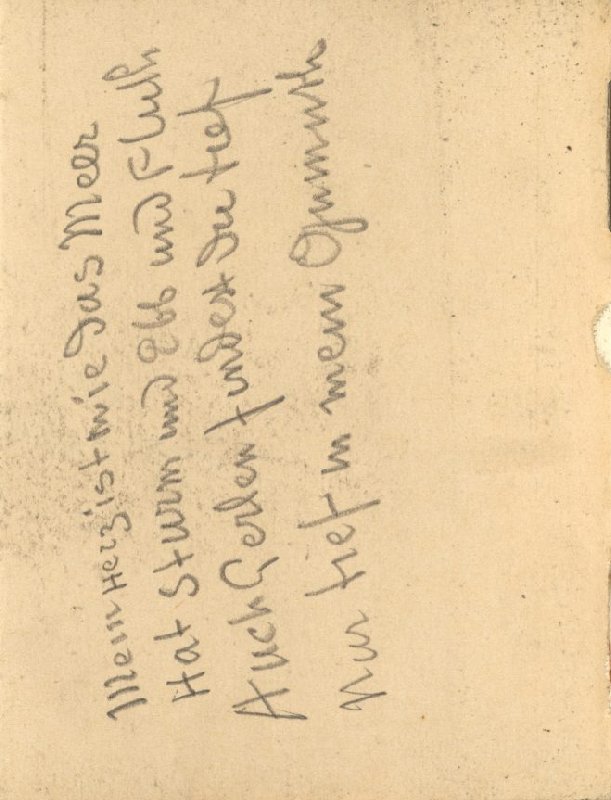 Mein Herz ist wie das Meer
Hat Sturm und Ebb und Fluth
Auch Perlen findest Du tief
Nur tief in mein